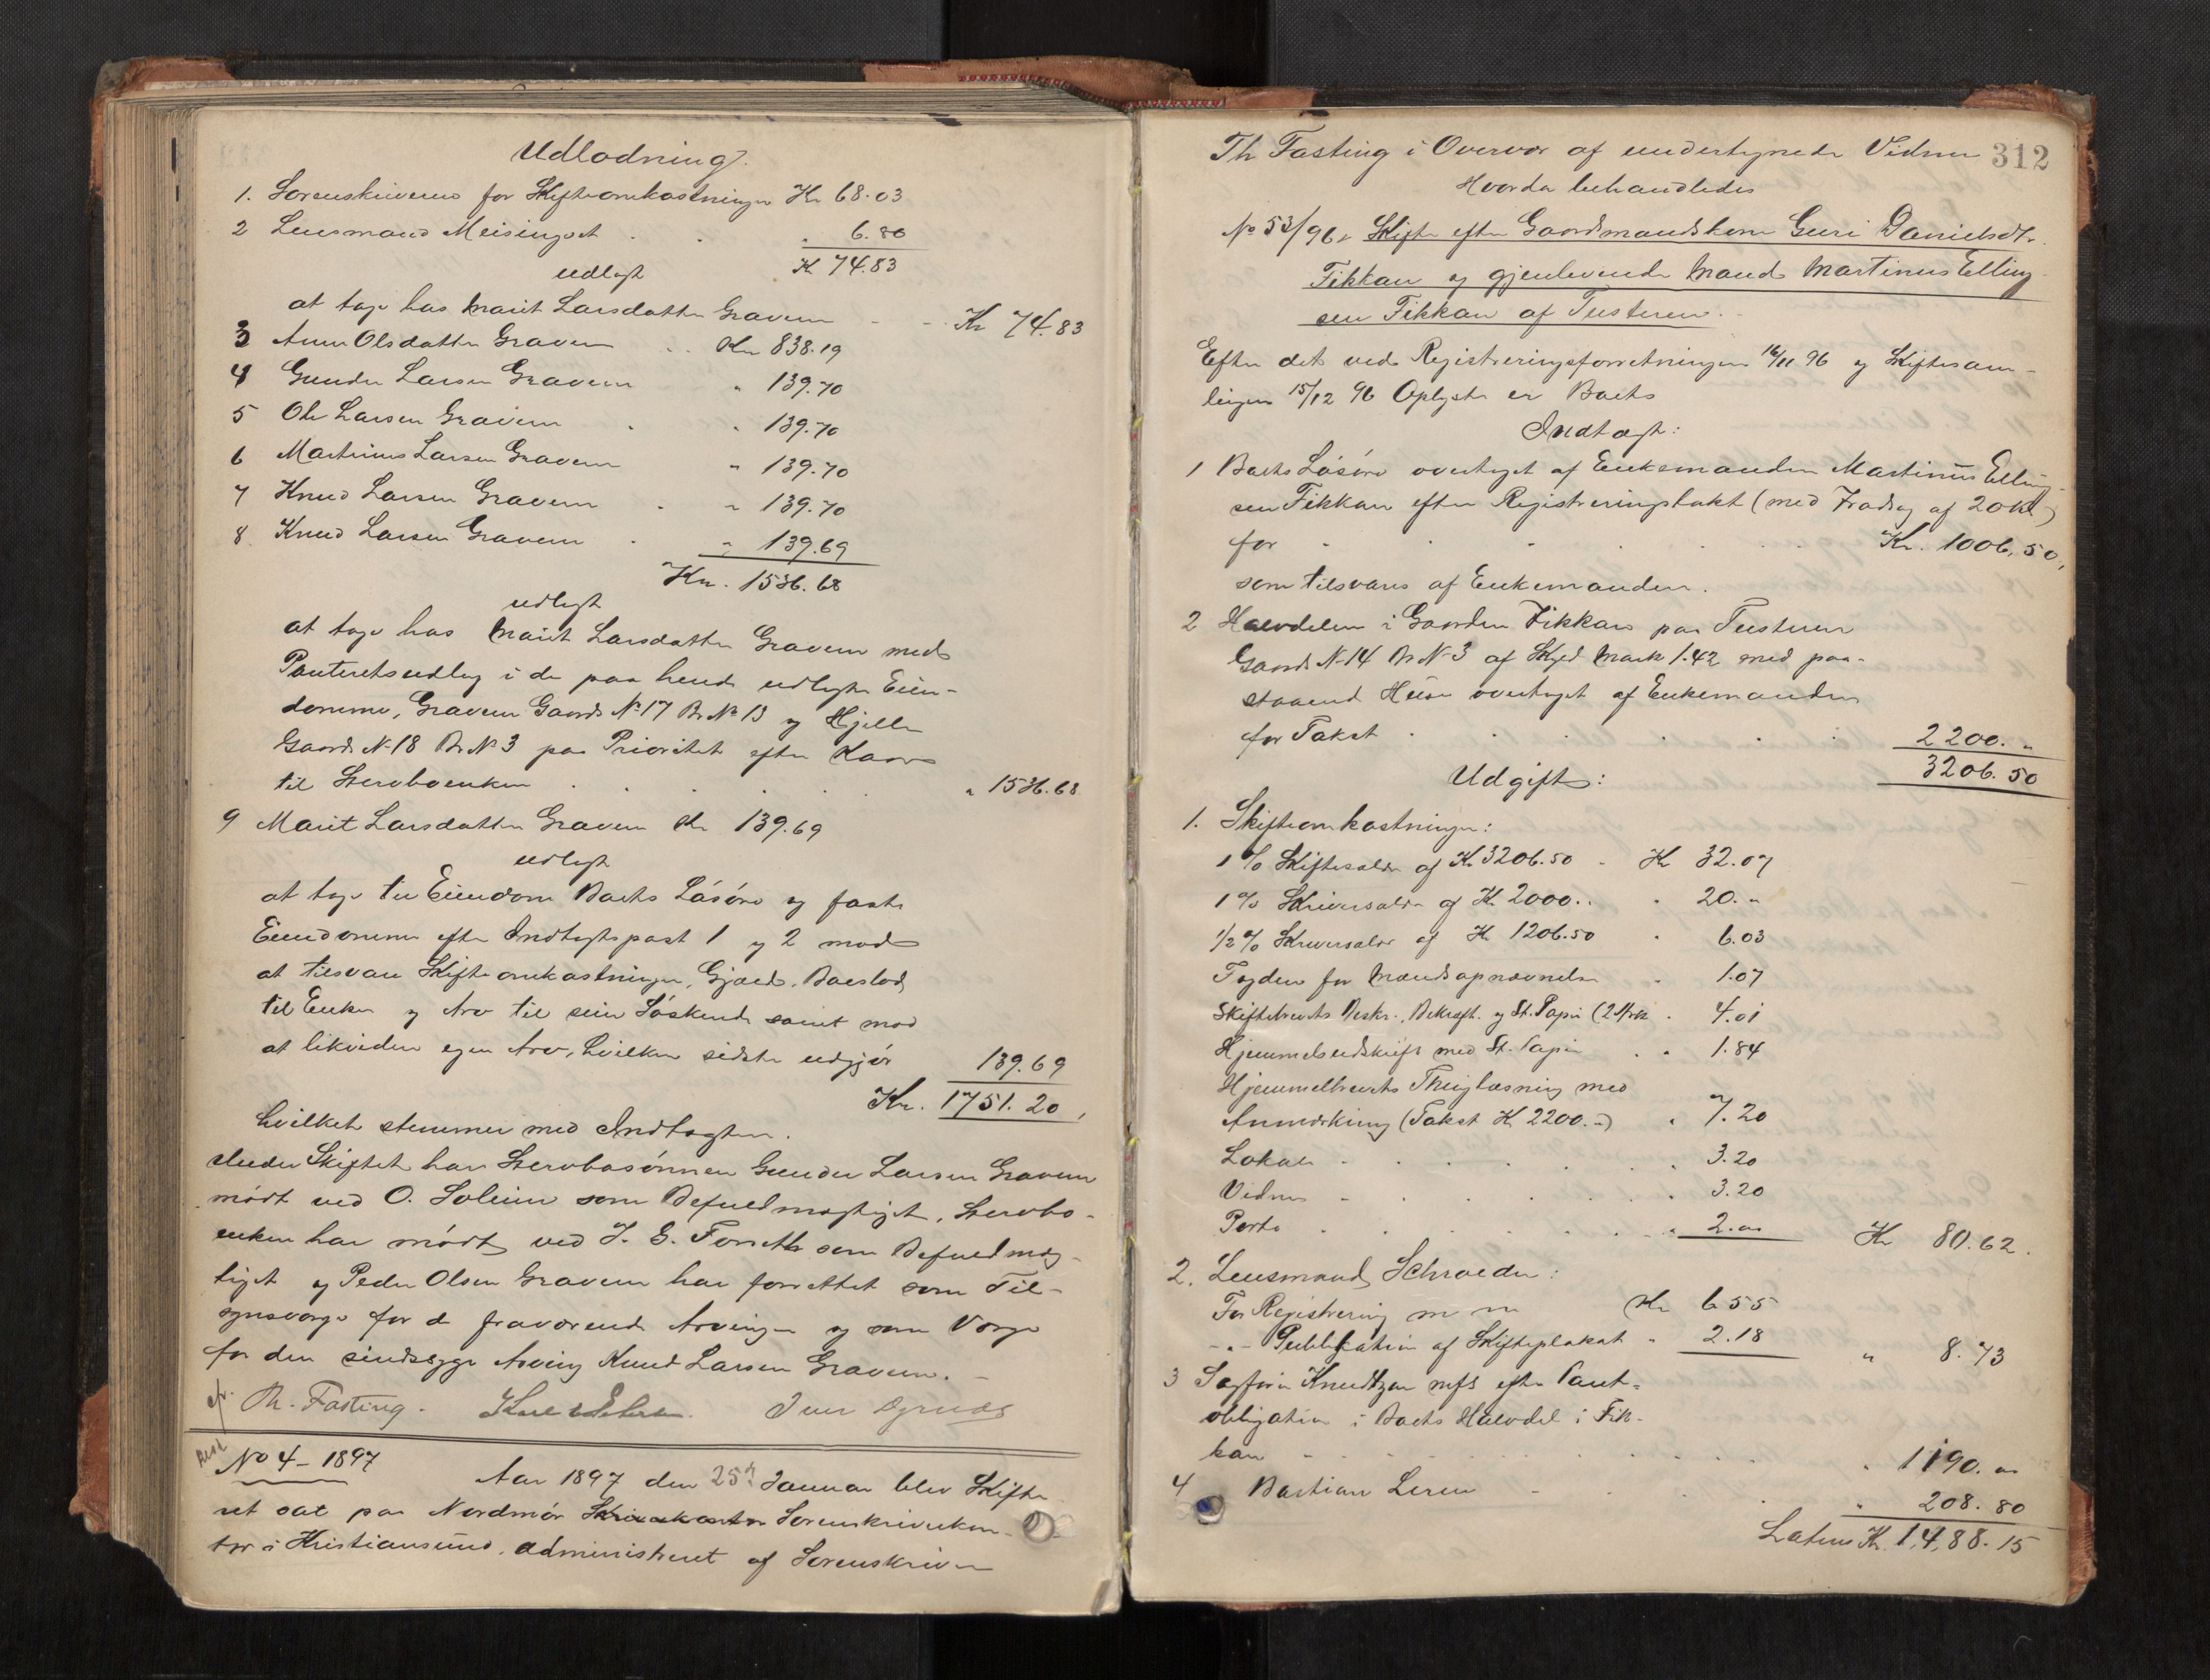 Udlodning.
1. Sorenskriveren for Skifteomkostninger Kr 68.03
2 Lensmand Meisingset . . " 6.80
Kr 74.83
udlagt
at tage hos Marit Larsdatter Gravem - - Kr 74.83
3 Anne Olsdatter Gravem . . Kr 838.19
4 Gunder Larsen Gravem " 139.70
5 Ole Larsen Gravem . " 139.70
6 Martinus Larsen Gravem " 139.70
7 Knud Larsen Gravem . " 139.70
8 Knud Larsen Gravem . " 139.69
Kr. 1536.68
udlagt
at tage hos Marit Larsdatter Gravem med
Panteretsudlæg i de paa hende udlagte Eien-
domme, Gravem Gaards No 17 Br No 13 og Hjelle
Gaards No 18 Br No 3 paa Prioritet efter Kaar
til Stervboenken . . . . . " 1536.68
9 Marit Larsdatter Gravem Kr 139.69
udlagt
at tage til Eiendom Boets Løsøre og faste
Eiendomme efter Indtægtspost 1 og 2 mod
at tilsvare Skifteomkostninger, Gjæld, Boeslod
til Enken og Arv til sine Søskende samt mod
at likvidere egen Arv, hvilken sidste udgjør 139.69
Kr. 1751.20,
hvilket stemmer med Indtægten.
Under Skiftet har Stervbosønnen Gunder Larsen Gravem
mødt ved O. Soleim som Befuldmægtiget. Stervbo-
enken har mødt ved J. E. Forseth som Befuldmæg-
tiget og Peder Olsen Gravem har forrettet som Til-
synsværge for de fraværende Arvinger og som Værge
for den sindssyge Arving Knud Larsen Gravem. -
Th. Fasting.
No 4 - 1897
Aar 1897 den 25de Januar blev Skifte
ret sat paa Nordmør Sorenskriverkon-
tor i Kristiansund, administreret af Sorenskriver
312
Th Fasting i Overvær af undertegnede Vidner
Hvorda behandledes
No 53/96. Skifte efter Gaardmandskone Guri Danielsdtr.
Fikkan og gjenlevende Mand Martinus Elling
sen Fikkan af Tusteren.
Efter det ved Registreringsforretningen 16/11 96 og Skiftesam-
lingen 15/12 96 Oplyste er Boets
Indtægt:
1 Boets Løsøre overtaget af Enkemanden Martinus Elling
sen Fikkan efter Registreringstakst (med Fradrag af 20 Kr)
for . . . . . . Kr. 1006,50,
som tilsvares af Enkemanden.
2 Halvdelen i Gaarden Fikkan paa Tusteren
Gaards No 14 Br No 3 af Skyld Mark 1.42 med paa-
staaende Huse overtaget af Enkemanden
for Takst . . . . . . 2200. "
3206.50
Udgift:
1. Skifteomkostninger:
1 % Skiftesalær af Kr 3206.50 . Kr 32.07
1 % Skriversalær af Kr 2000.. . 20. "
1/2 % Skriversalær af Kr 1206.50 . 6.03
Fogden for Mændsopnævnelse . 1.07
Skiftebrevets Beskr., Bekræft. og St. Papir (2 Ark . 4.01
Hjemmelsudskrift med St. Papir . . 1.84
Hjemmelbrevets Thinglæsning med
Anmærkning (Takst Kr 2200.-) . 7.20
Lokale . . . . . . 3.20
Vidner . . . . . . 3.20
Porto . . . . . . 2.00 Kr 80.62.
2. Lensmand Schrøder:
For Registrering m m Kr 6.55
-"- Publikation af Skifteplakat " 2.18 " 8.73
3 Sagfører Knudtzon mfs efter Pant-
obligation i Boets Halvdel i Fik-
kan . . . . . . " 1190. 00
4 Bastian Leren - . . " 208.80
Latus Kr. 1,488.15